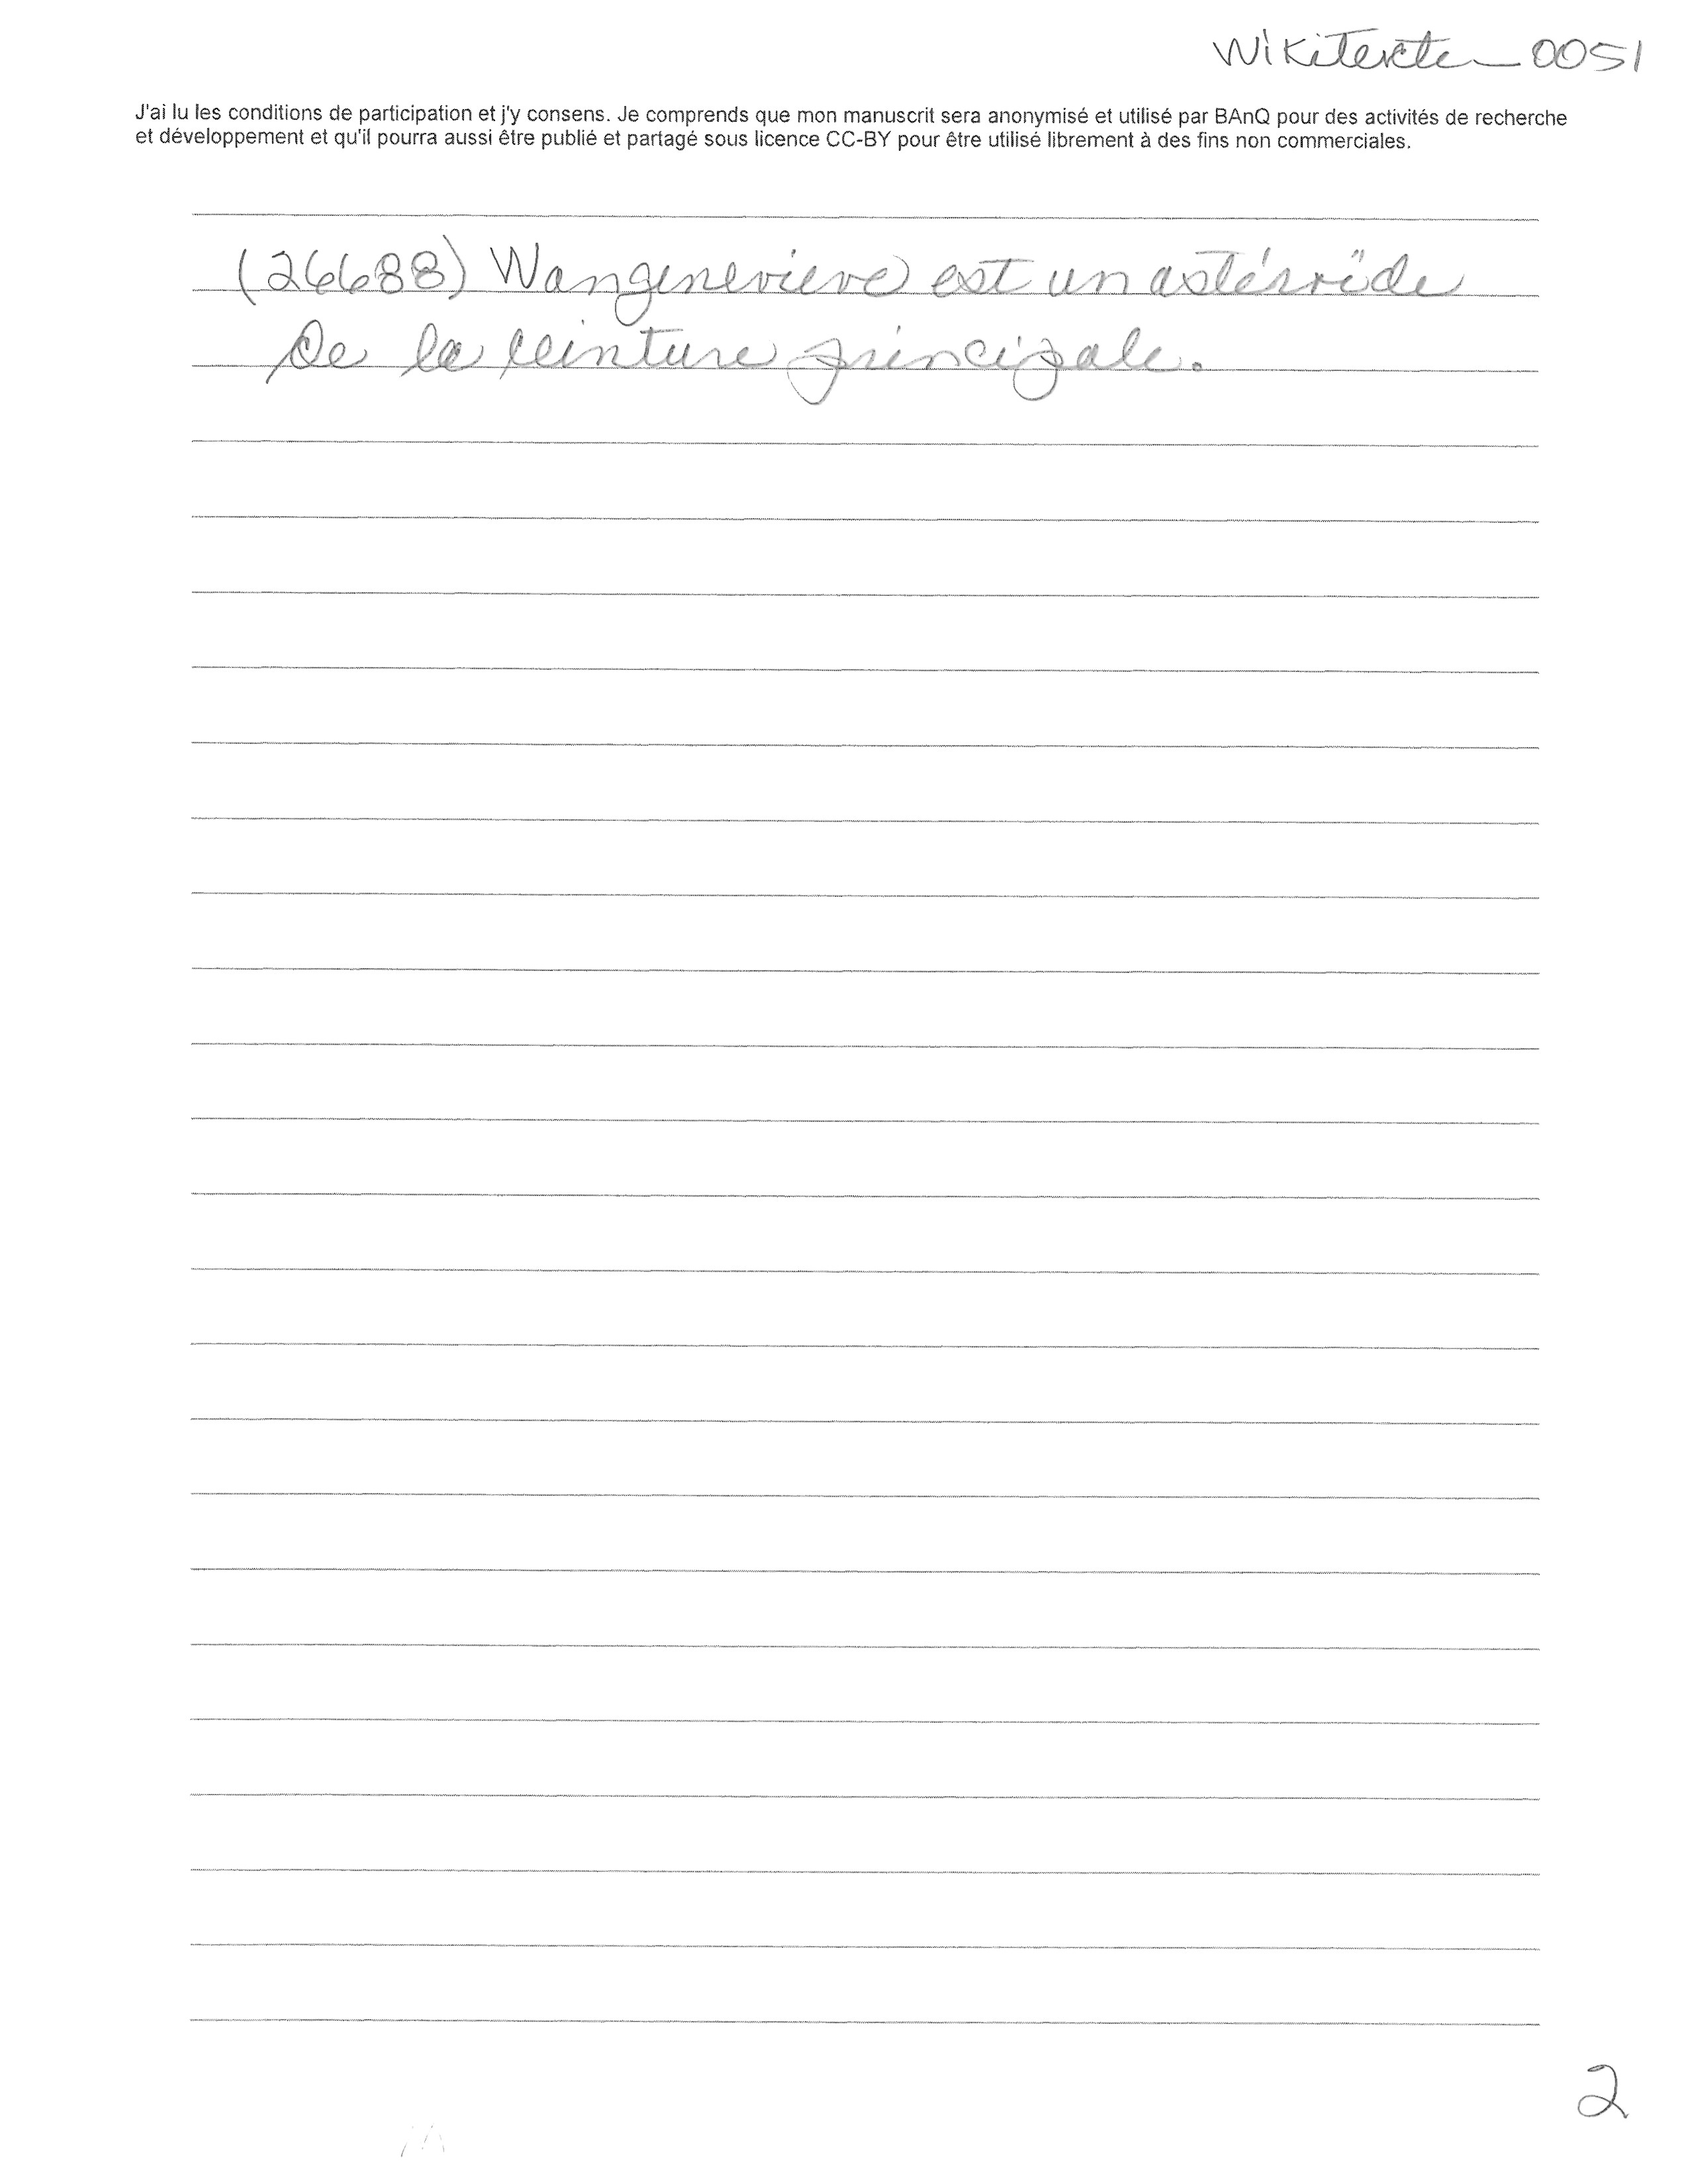 Wikitexte_0051
J'ai lu les conditions de participation et j'y consens. Je comprends que mon manuscrit sera anonymisé et utilisé par BAnQ pour des activités de recherche
et développement et qu'il pourra aussi être publié et partagé sous licence CC-BY pour être utilisé librement à des fins non commerciales.
(26688) Wangenevieve est un astéroïde
De la ceinture principale.
2